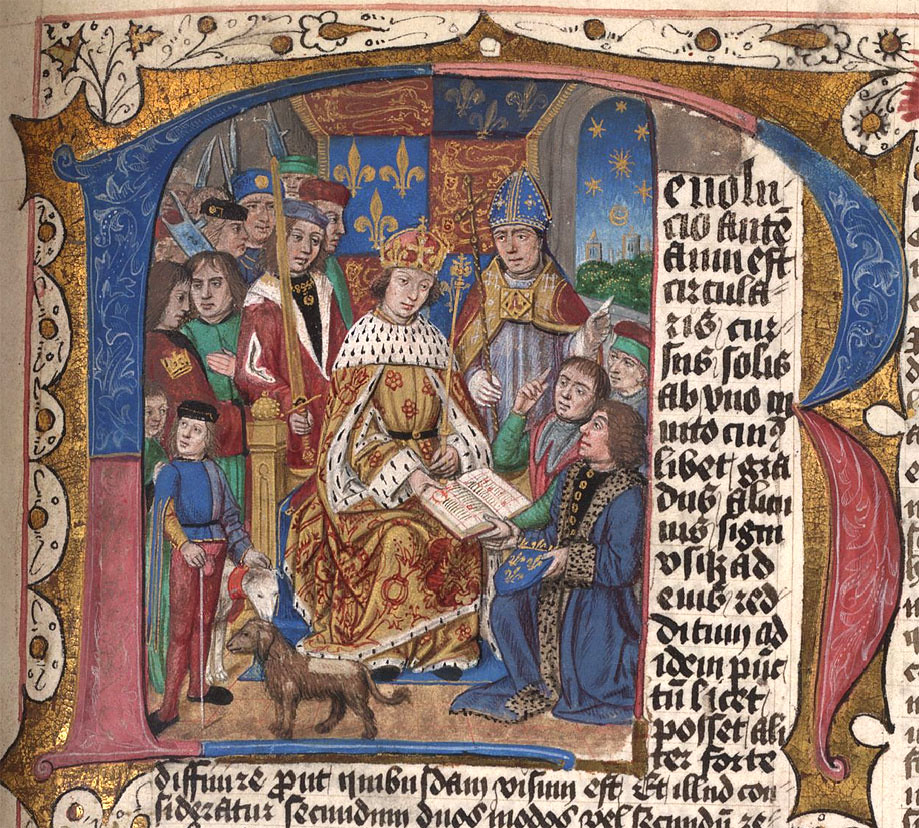 Revolu-
cio antē
anni est
circula-
ris cur-
sus solis
ab vno p
uncto cuiꝰ
libet gra
dus alicu
ius signi
vsqꝫ ad
eius red
ditum ad
idem pūc
tū licet
posset ali
ter forte
diffinire prout quibusdam visum est Et illud con
sideratur secundum duos modos vel secundū re